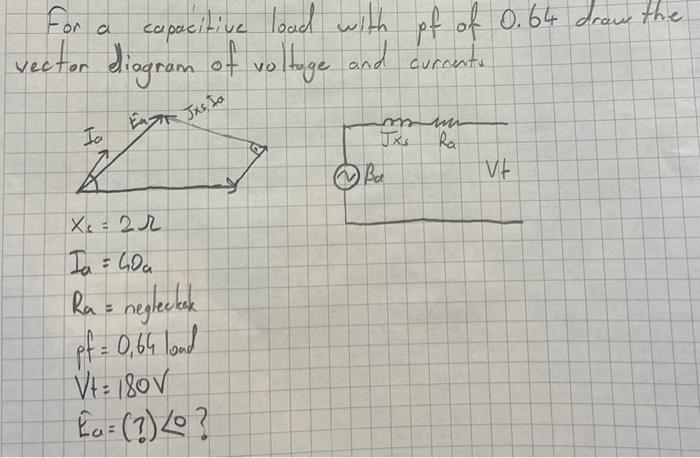 For a capacitive load with pf of 0.64 draw the
vector diagram of voltage and currents
Ia
Ea
Jxs Ia
Jxs Ra
Ea
Vt
Xs = 2 Ω
Ia = 60a
Ra =
pf = 0,64 load
Vt = 180V
Ea = (?) ∠θ ?